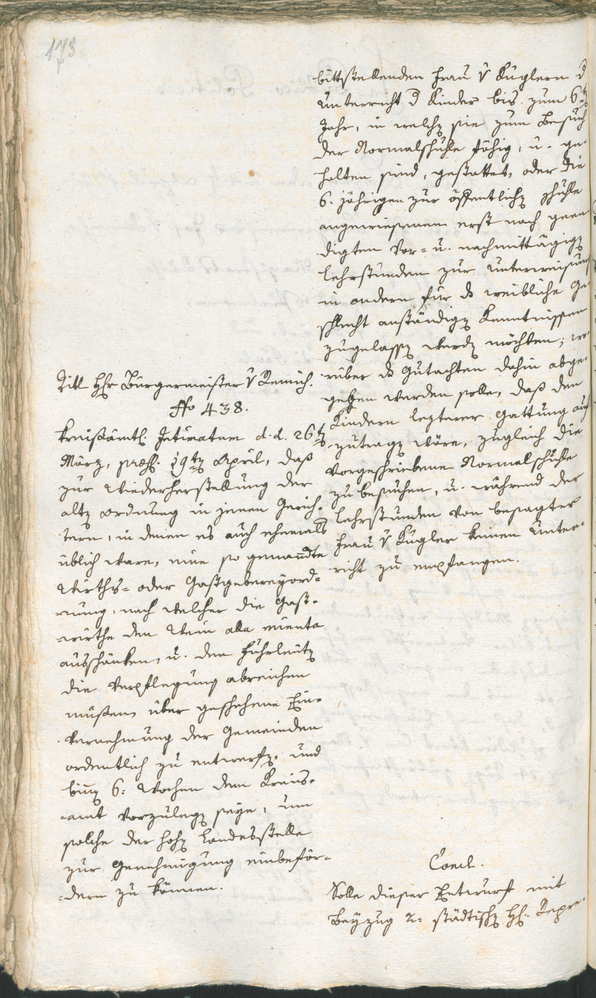 173
bittstellenden Frau v Kuglern d
Unterricht d Kinder bis zum 6t
Jahr, in welchen sie zum Besuch
der Normalschule fähig, u. ge-
halten sind, gestattet, oder die
6. jährigen zur öffentlichen Schule
angewiesenen erst nach geen-
digten Vor- u. nachmittägigen
Lehrstunden zur Unterweisung
in andern für das weibliche Ge-
schlecht anständigen Kenntnissen
zugelassen werden möchten;
rüber das Gutachten dahin abge-
geben werden solle, daß den
Kindern letzterer Gattung auf-
zutragen wäre, zugleich die
vorgeschriebene Normalschule
zu besuchen, u. während der
Lehrstunden von besagter
Frau v Kugler keinen Unter-
richt zu empfangen.
Titl Hr Bürgermeister v Remich.
No 438.
Kreisämtl. Intimatum d. d. 26t
März, praes. 19ten April, daß
zur Wiederherstellung der
alten Ordnung in jenen Gerich-
tern, in denen es auch ehemals
üblich ware, eine so genannte
Wirths- oder Gastgebereyord-
nung, nach welcher die Gast-
wirthe den Wein alla minuta
ausschänken, u. den Fuhrleuten
die Verpflegung abreichen
müßen, über geschehene Ein-
vernehmung der Gemeinden
ordentlich zu entwerfen, und
binen 6: Wochen dem Kreis-
amt vorzulegen seye, um
solche der hohen Landesstelle
zur Genehmigung einbeför-
dern zu können.
Concl.
Solle dieser Entwurf mit
Beyzug 2er städtischen HH. Repre-